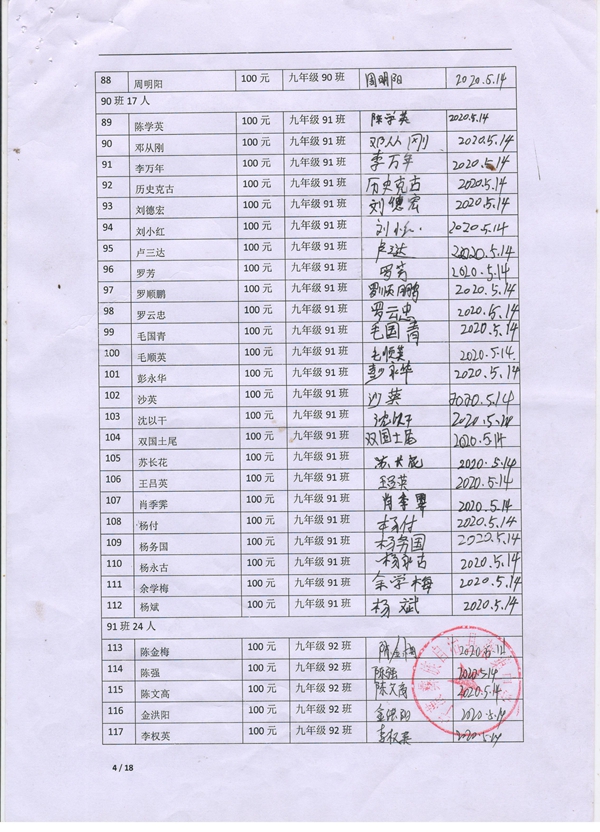 88 周明阳 100元 九年级90班 周明阳 2020.5.14
90班17人
89 陈学英 100元 九年级91班 陈学英 2020.5.14
90 邓从刚 100元 九年级91班 邓从刚 2020.5.14
91 李万年 100元 九年级91班 李万年 2020.5.14
92 历史克古 100元 九年级91班 历史克古 2020.5.14
93 刘德宏 100元 九年级91班 刘德宏 2020.5.14
94 刘小红 100元 九年级91班 刘小红 2020.5.14
95 卢三达 100元 九年级91班 卢三达 2020.5.14
96 罗芳 100元 九年级91班 罗芳 2020.5.14
97 罗顺鹏 100元 九年级91班 罗顺鹏 2020.5.14
98 罗云忠 100元 九年级91班 罗云忠 2020.5.14
99 毛国青 100元 九年级91班 毛国青 2020.5.14
100 毛顺英 100元 九年级91班 毛顺英 2020.5.14.
101 彭永华 100元 九年级91班 彭永华 2020.5.14
102 沙英 100元 九年级91班 沙英 2020.5.14
103 沈以干 100元 九年级91班 沈以干 2020.5.
104 双国土尾 100元 九年级91班 双国土尾 2020.5.14
105 苏长花 100元 九年级91班 苏长花 2020.5.14
106 王吕英 100元 九年级91班 王吕英 2020.5.14
107 肖季霁 100元 九年级91班 肖季霁 2020.5.14
108 杨付 100元 九年级91班 杨付 2020.5.14
109 杨务国 100元 九年级91班 杨务国 2020.5.14
110 杨永古 100元 九年级91班 杨永古 2020.5.14
111 余学梅 100元 九年级91班 余学梅 2020.5.14
112 杨斌 100元 九年级91班 杨斌 2020.5.14
91班24人
113 陈金梅 100元 九年级92班 陈金梅 2020.5.14
114 陈强 100元 九年级92班 陈强 2020.5.14
115 陈文高 100元 九年级92班 陈文高 2020.5.14
116 金洪阳 100元 九年级92班 金洪阳 2020.5.14
117 李权英 100元 九年级92班 李权英 2020.5.14
4 / 18